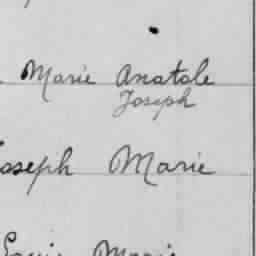 Marie Anatole
Joseph
Joseph Marie
Louis Marie